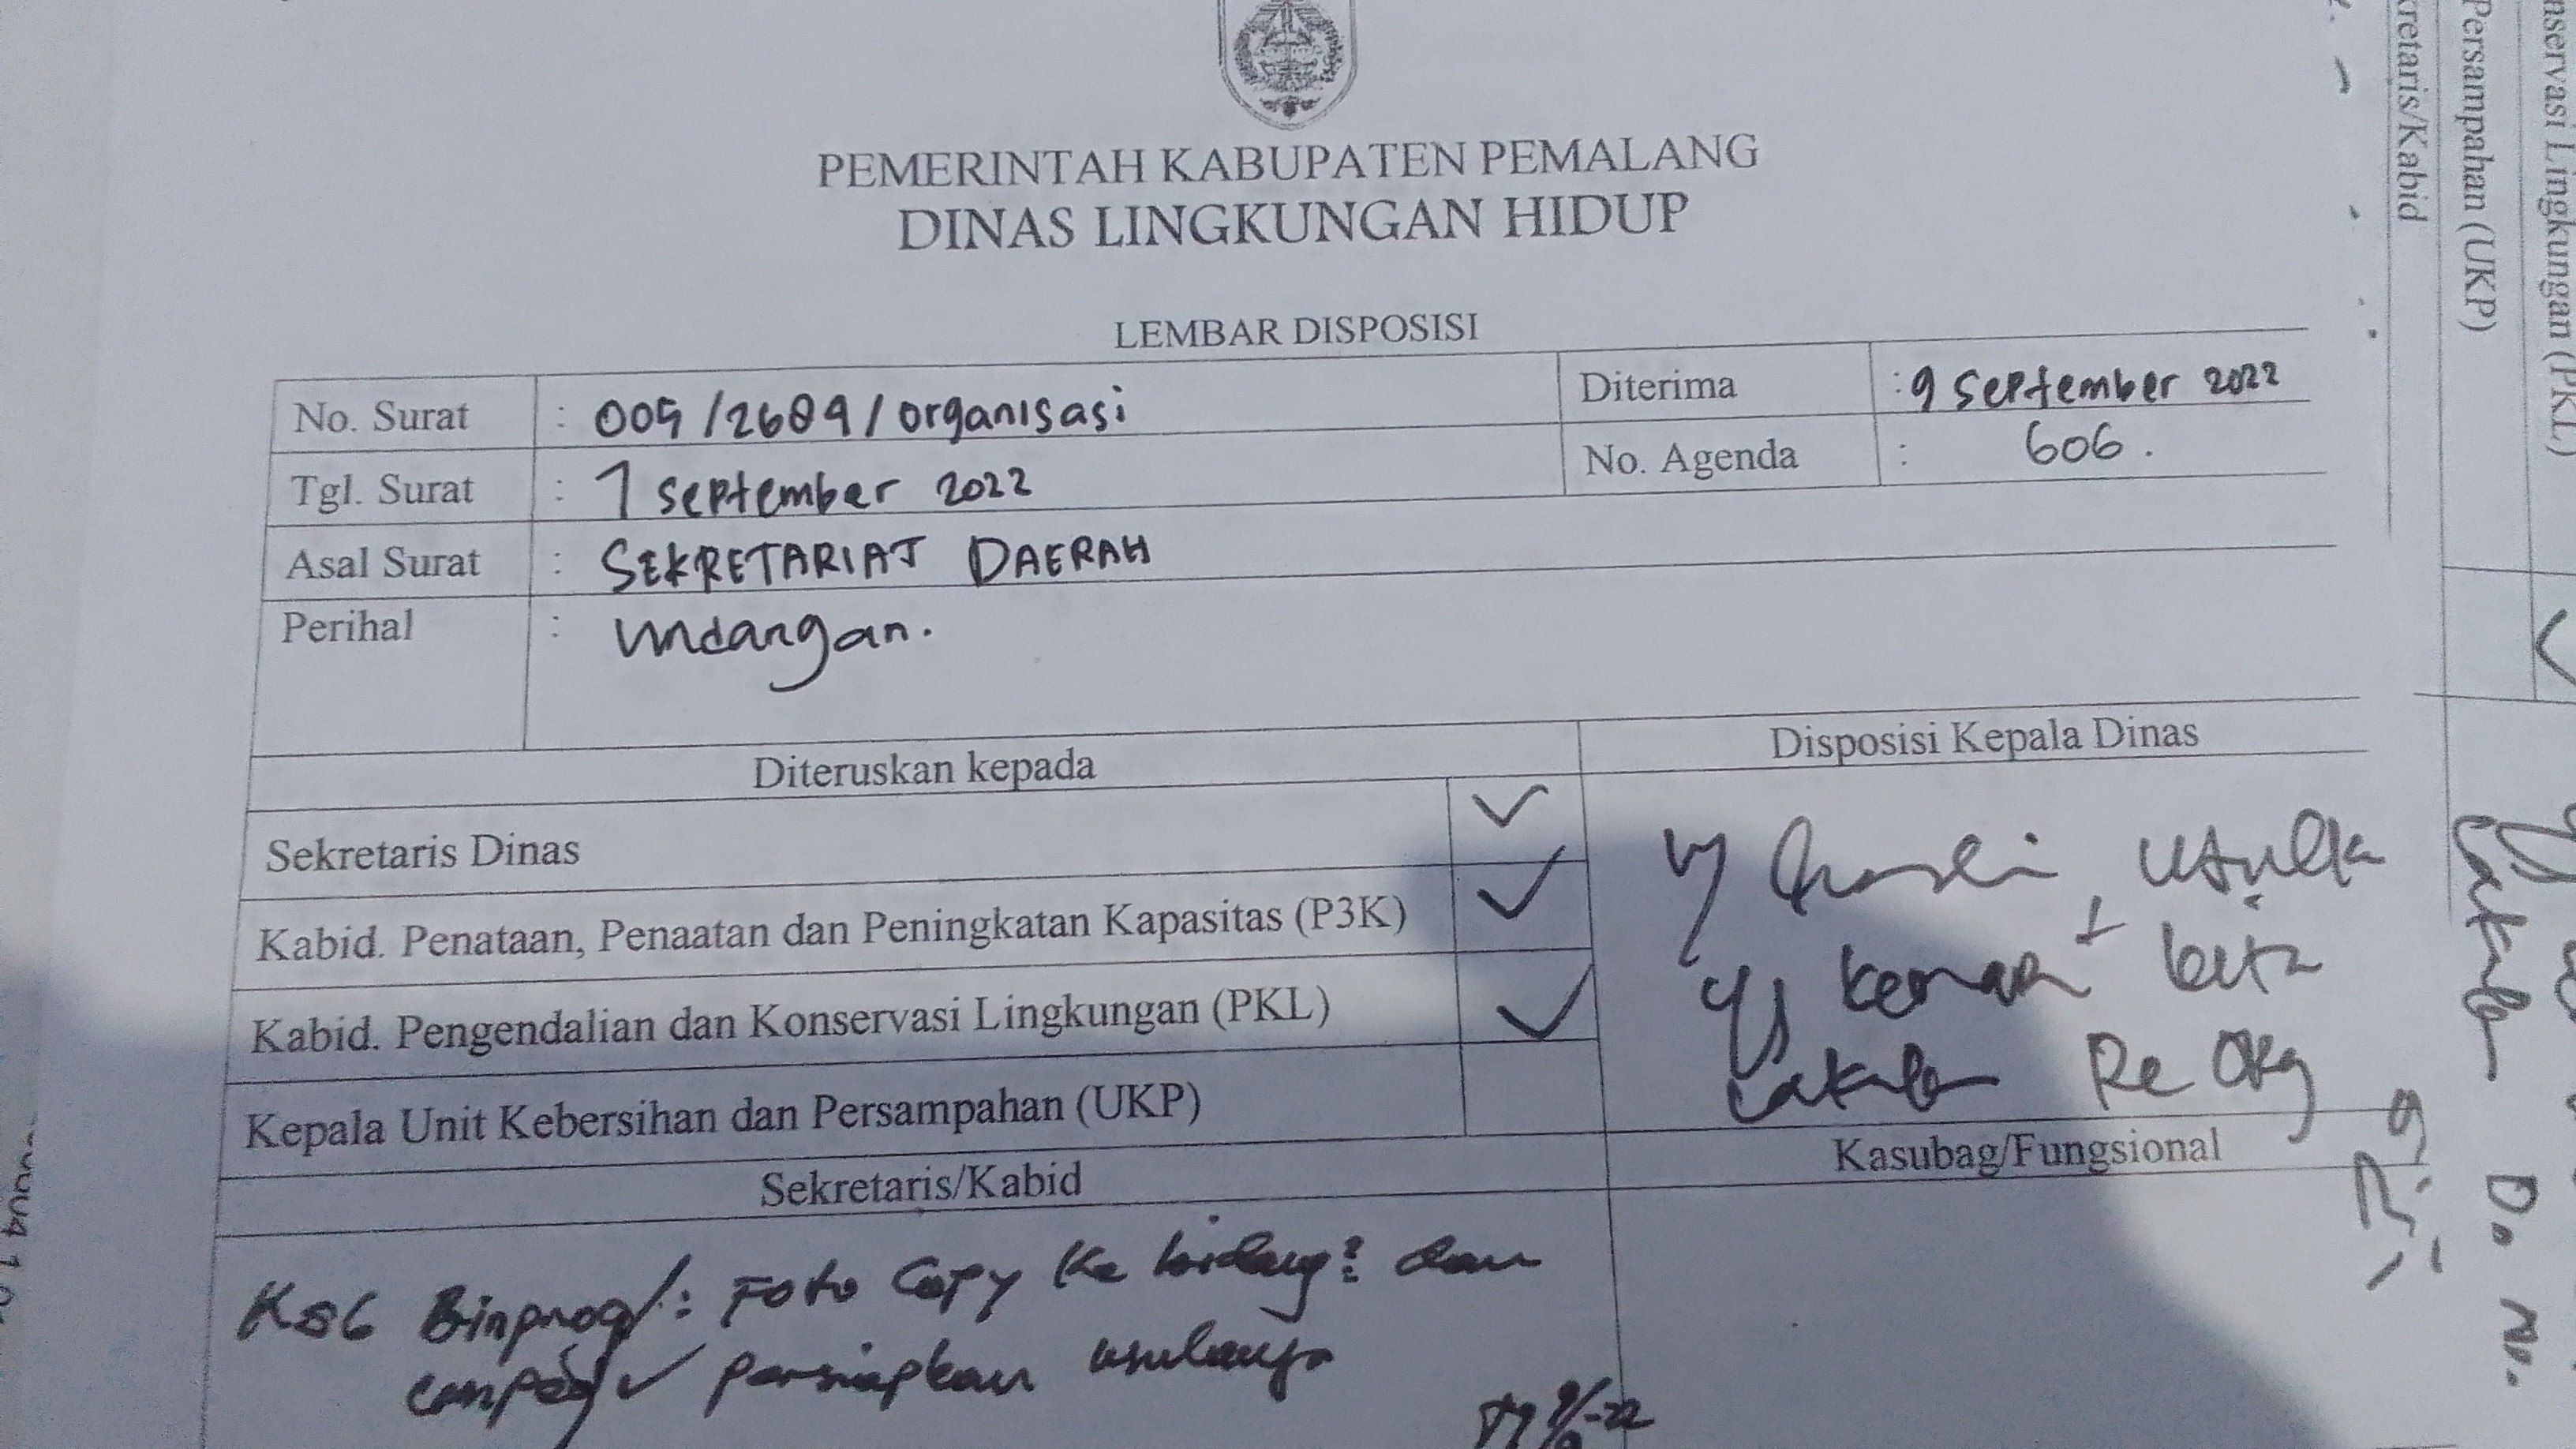 PEMERINTAH KABUPATEN PEMALANG
DINAS LINGKUNGAN HIDUP
LEMBAR DISPOSISI
No. Surat : 005/2689/organisasi
Diterima : 9 September 2022
Tgl. Surat : 7 September 2022
No. Agenda : 606.
Asal Surat : SEKRETARIAT DAERAH
Perihal : Undangan.
Diteruskan kepada
Disposisi Kepala Dinas
Sekretaris Dinas
Kabid. Penataan, Penaatan dan Peningkatan Kapasitas (P3K)
Kabid. Pengendalian dan Konservasi Lingkungan (PKL)
Kepala Unit Kebersihan dan Persampahan (UKP)
kita
Re Org
Sekretaris/Kabid
Kasubag/Fungsional
Binprog/: Foto Copy ke bidang2 dan
persiapkan usulannya
nservasi Lingkungan (PKL)
Persampahan (UKP)
kretaris/Kabid